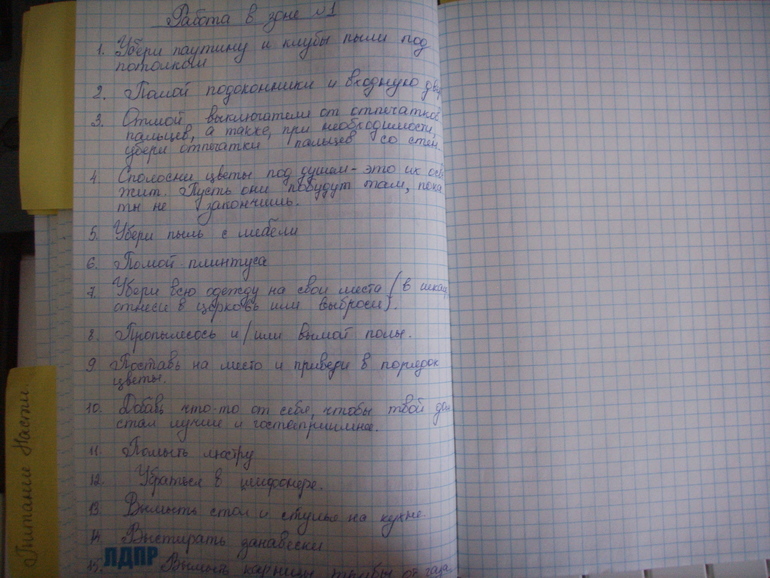 Работа в зоне №1
1. Убери паутину и клубы пыли под
потолком
2. Помой подоконники и входную две
3. Отмой выключатели от отпечатков
пальцев, а также, при необходимости,
убери отпечатки пальцев со стен.
4. Сполосни цветы под душем - это их осве
жит. Пусть они побудут там, пока
ты не закончишь.
5. Убери пыль с мебели
6. Помой плинтуса
7. Убери всю одежду на свои места (в шкаф,
отнеси в церковь или выброси).
8. Пропылесось и/или вымой полы.
9 Поставь на место и приведи в порядок
цветы.
10. Добавь что-то от себя, чтобы твой дом
стал лучше и гостеприимнее.
11. Помыть люстру
12. Убраться в шифонере.
13. Вымыть стол и стулья на кухне
14. Выстирать занавески
15. Вымыть карнизы, от газа
ЛДПР
Питание Насти